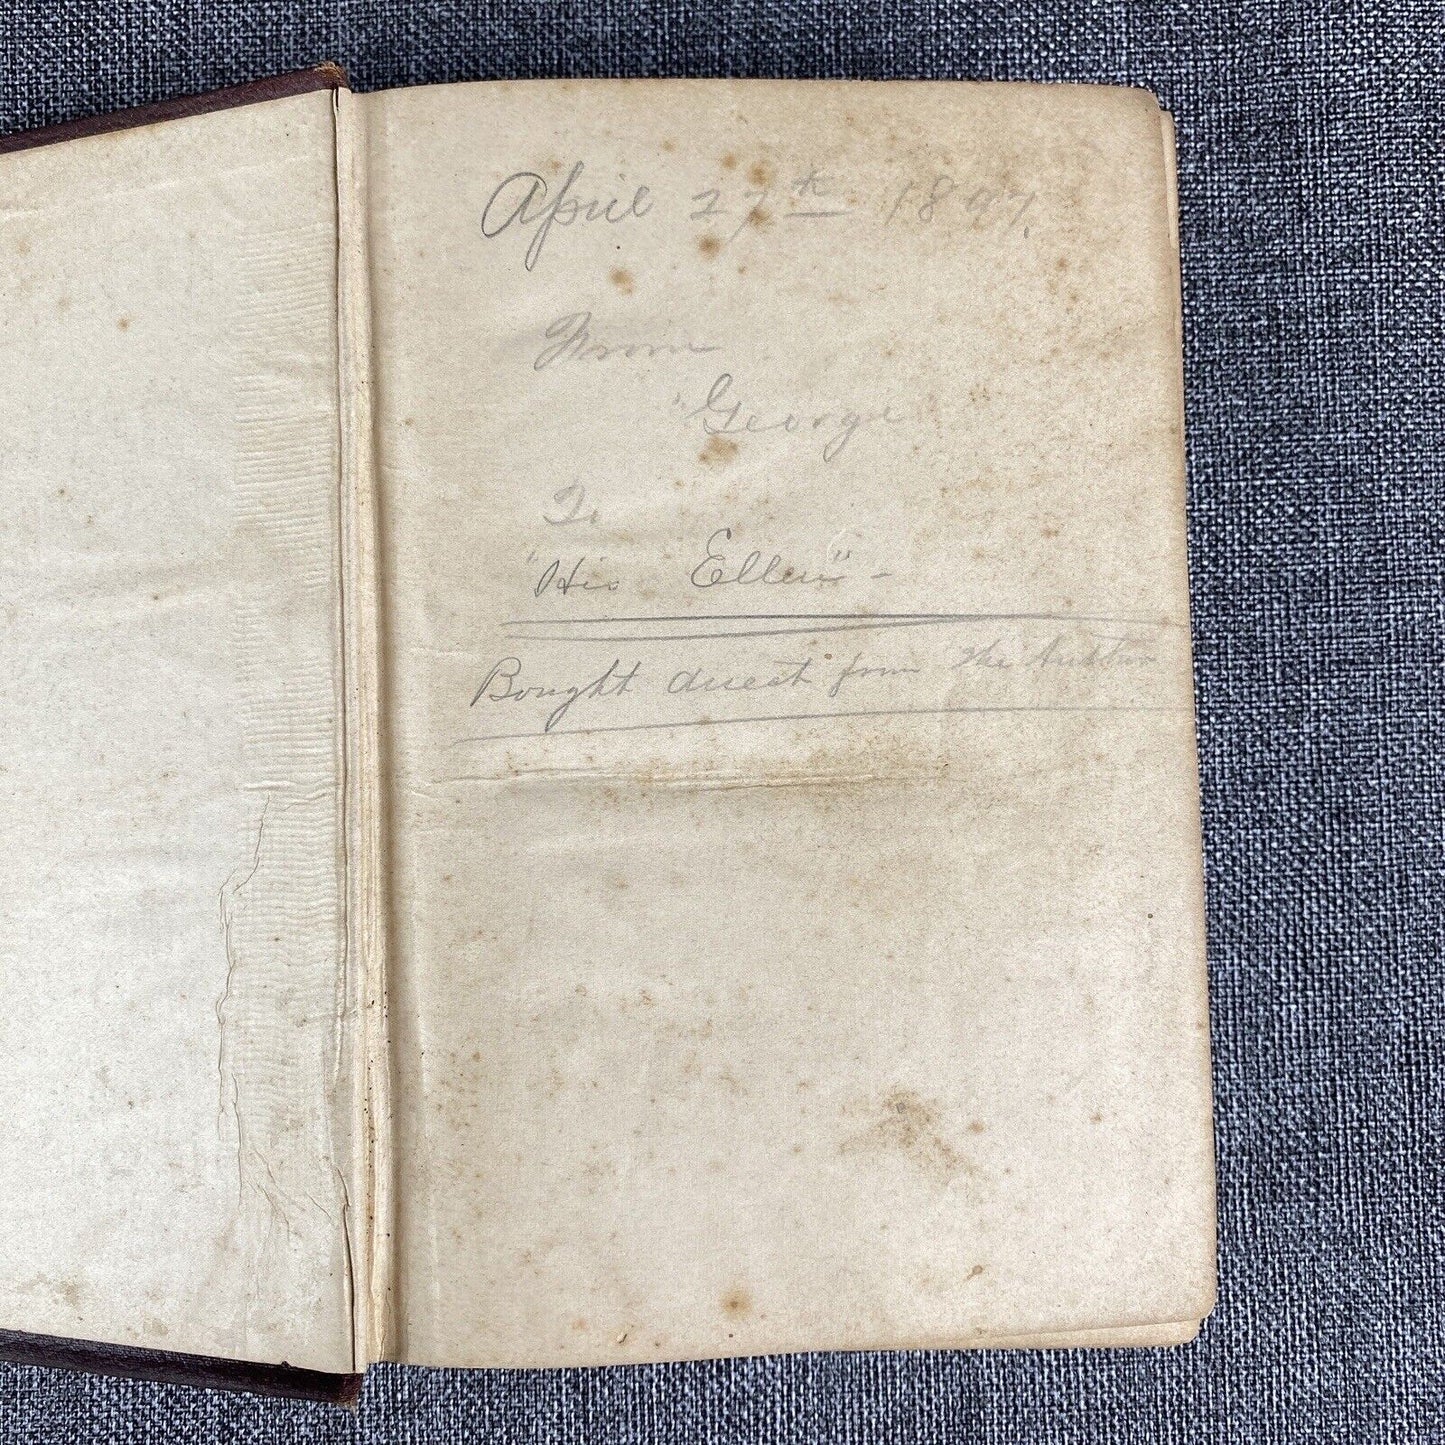 April 27th 1897.
From
"George"
To
"His Ellen" -
Bought direct from the Author